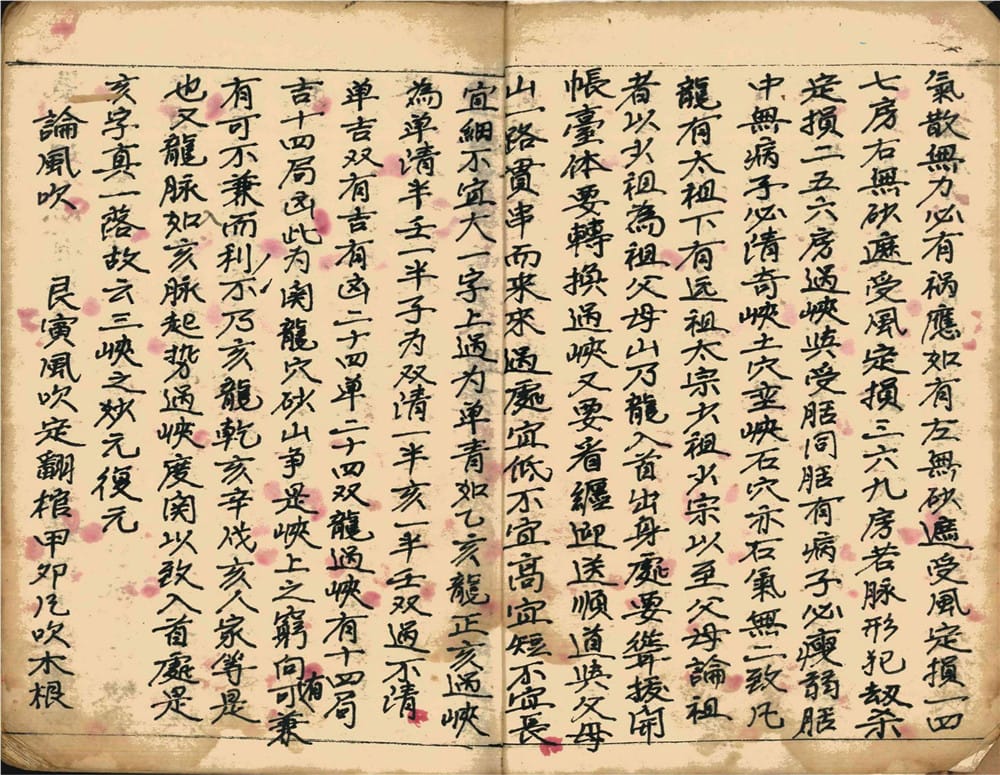 氣散無力必有禍應如有左無砂遮受風定損一四
七房右無砂遮受風定損三六九房若脉形犯刼杀
定損二五六房過峽與受胎同胎有病子必瘦弱胎
中無病子必清奇峽土穴土峽石穴亦石氣無二致凡
龍有太祖下有远祖太宗少祖少宗以至父母論祖
者以少祖為祖父母山乃龍入首出身處要聳拔開
帳臺体要轉換過峽又要看纏迎送順道與父母
山一路貫串而來來過處宜低不宜高宜短不宜長
宜細不宜大一字上過为单青如乙亥龍正亥過峽
為单清半壬一半子为双清一半亥一半壬双過不清
单吉双有吉有凶二十四单二十四双龍過峽有十四局
吉十四局凶此为関龍穴砂山争是峽上之窮何可兼
有可不兼而利不乃亥龍乾亥辛戌亥人家等是
也又龍脉如亥脉起势過峽度関以致入首處是
亥字真一落故云三峽之妙元復元
論風吹 艮寅風吹定翻棺甲卯凡吹木根